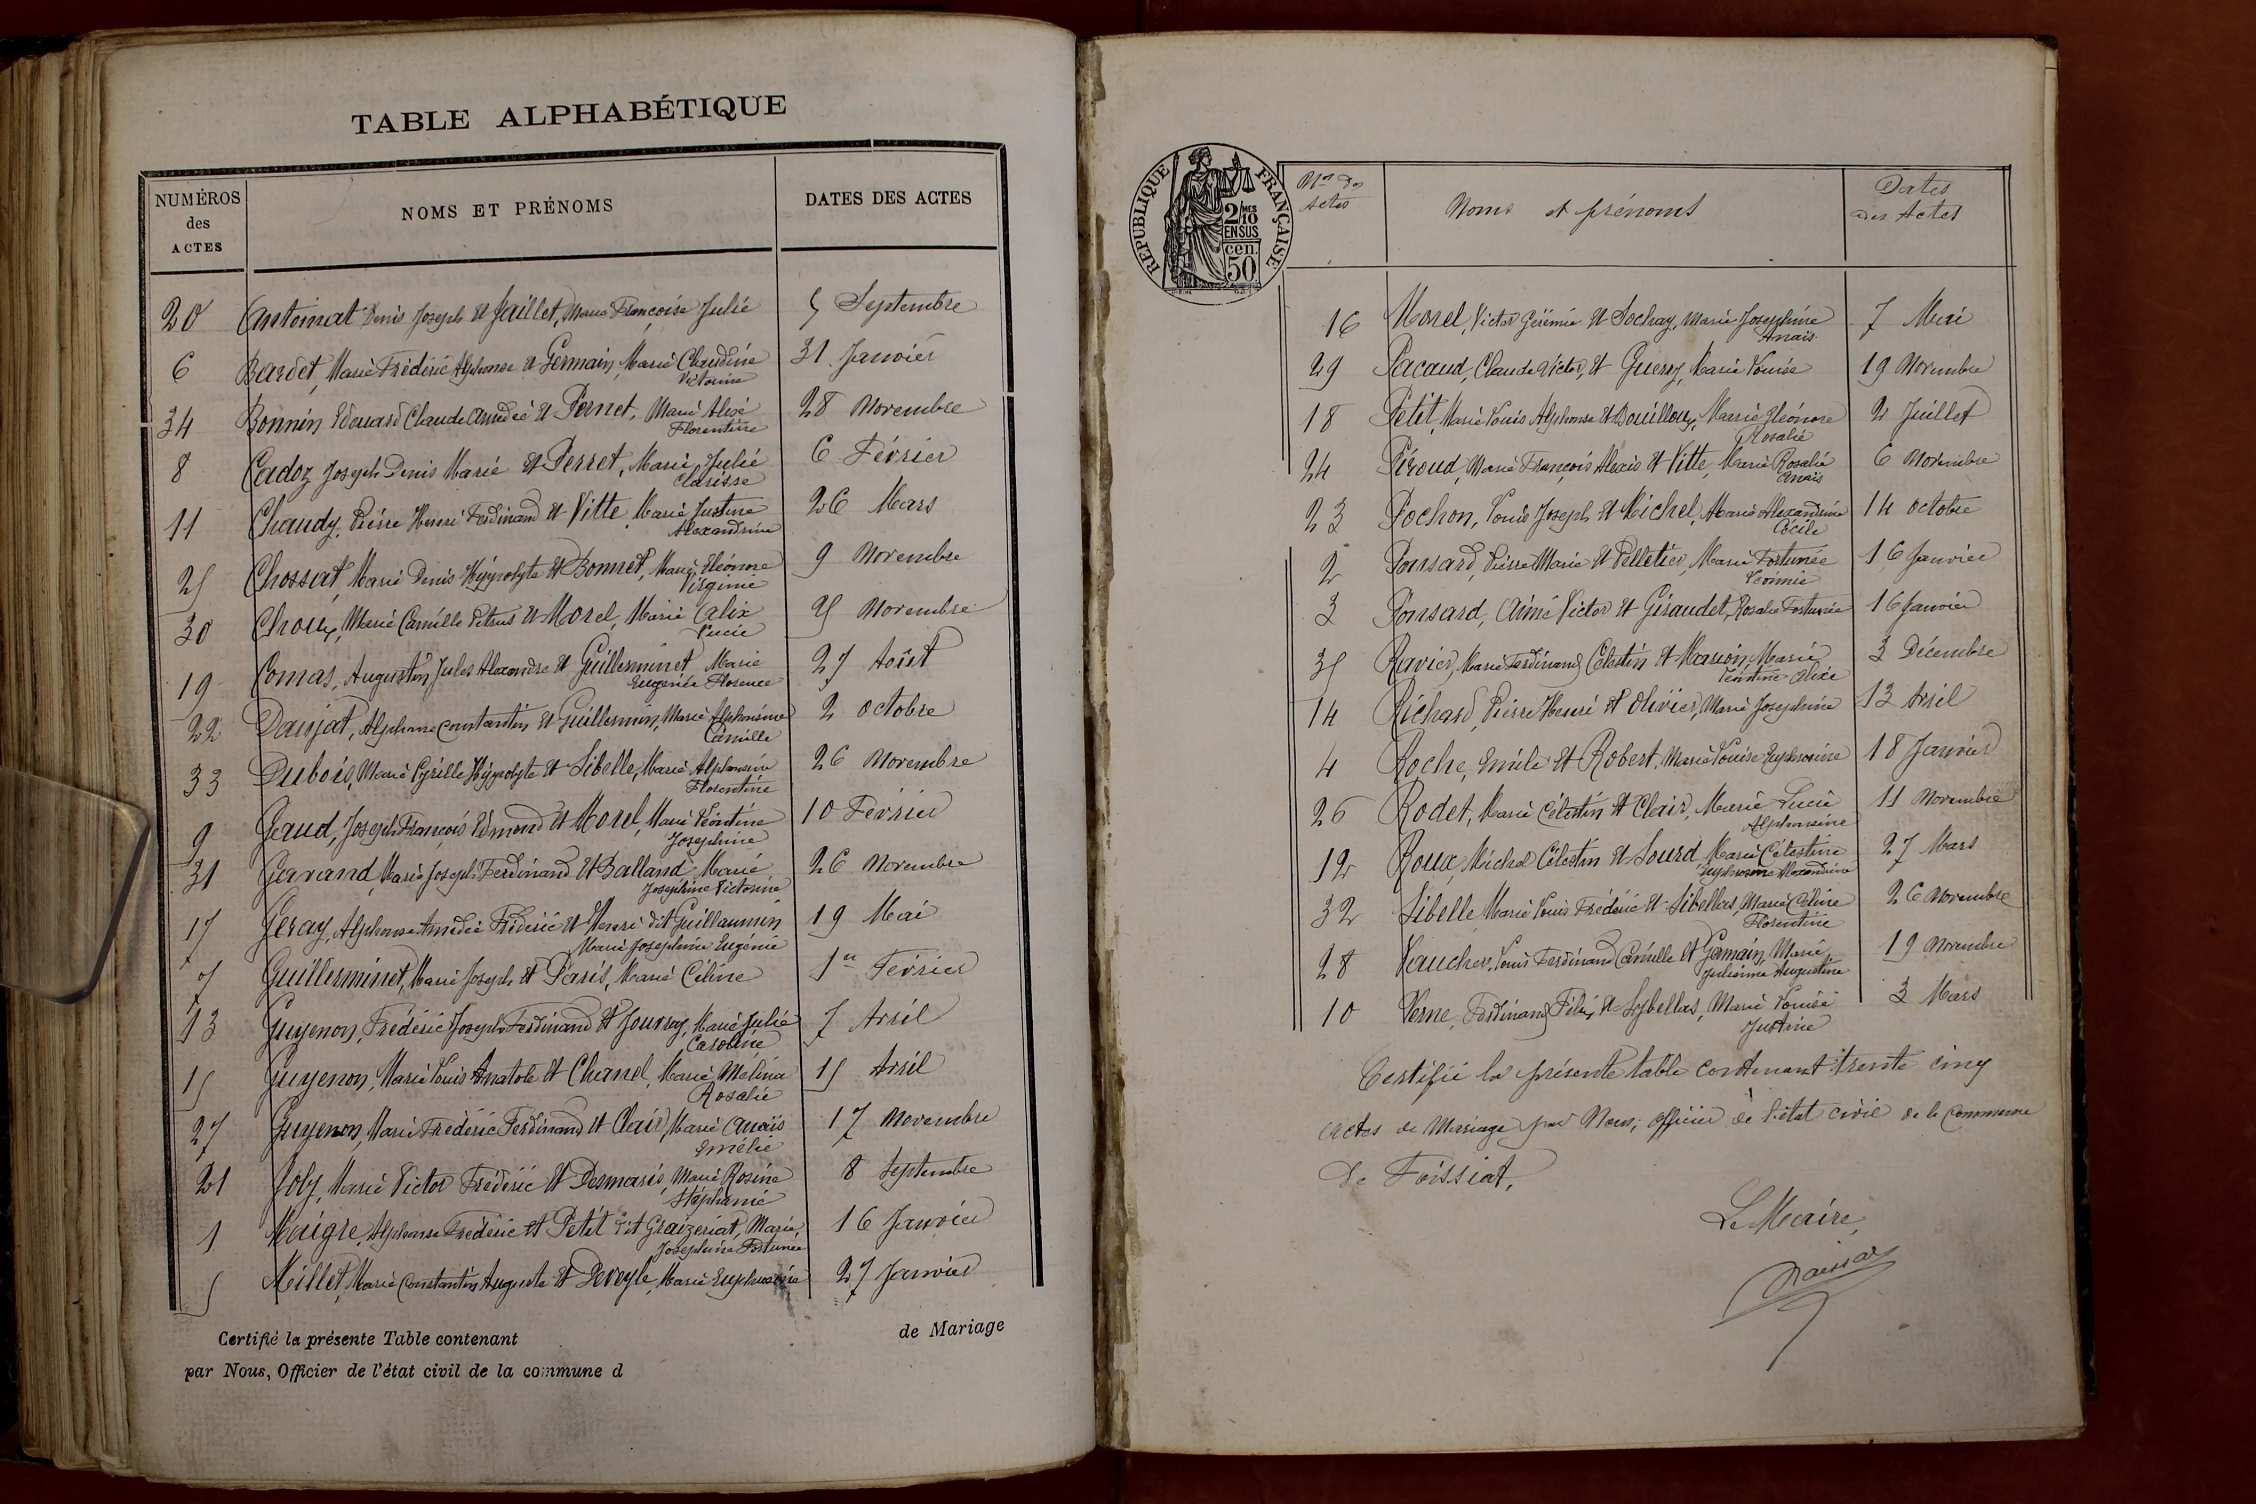 TABLE ALPHABÉTIQUE
NUMÉROS des ACTES
NOMS ET PRÉNOMS
DATES DES ACTES
20 Antoinat Denis Joseph et Jaillet, Marie Françoise Julie 5 Septembre
6 Bardet, Marie Frédéric Alphonse et Germain, Marie Claudine 31 Janvier
Victorine
34 Bonnin Edouard Claude Amédée et Pernet, Marie Alexé 28 Novembre
Florentine
8 Cadoz Joseph Denis Marie et Perret, Marie Julie 6 Février
Clarisse
11 Chaudy, Pierre Henri Ferdinand et Vitte, Marie Justine 26 Mars
Alexandrine
25 Chossat, Marie Denis Hyppolyte et Bonnet, Marie Eléonore 9 Novembre
Virginie
30 Choux, Marie Camille Petrus et Morel, Marie Alix 25 Novembre
Lucie
19 Comas, Augustin Jules Alexandre et Guilleminet Marie 27 Août
Eugénie Florence
22 Daujat, Alphonse Constantin et Guillermin, Marie Alphonsine 2 octobre
Camille
33 Dubois, Marie Cyrille Hyppolyte et Sibelle, Marie Alphonsine 26 Novembre
Florentine
9 Feaud, Joseph François Edmond et Morel, Marie Léontine 10 Février
Josephine
31 Gavand, Marie Joseph Ferdinand et Balland Marie 26 Novembre
Josephine Victorine
17 Geray, Alphonse Amédée Fréderic et Henri dit Guillaumin 19 Mai
Marie Josephine Eugénie
7 Guilleminet, Marie Joseph et Paris, Marie Céline 1er Février
13 Guyenon, Frédéric Joseph Ferdinand et Jouvray, Marie Julie 7 Avril
Caroline
15 Guyenon, Marie Louis Anatole et Chanel, Marie Mélina 15 Avril
Rosalie
27 Guyenon, Marie Frédéric Ferdinand et Clair, Marie Anaïs 17 Novembre
Emélie
21 Joly, Marie Victor Frédéric et Desmaris, Marie Rosine 8 Septembre
Stéphanie
1 Maigre, Alphonse Frédéric et Petit dit Graizeriat, Marie 16 Janvier
Josephine Fortunée
5 Millet, Marie Constantin Auguste et Deveyle, Marie Euphrosine 27 Janvier
Certifié la présente Table contenant de Mariage
par Nous, Officier de l'état civil de la commune d
RÉPUBLIQUE FRANÇAISE
2/10 MES
EN SUS
50 cen.
Nos des Actes
Noms et prénoms
Dates des Actes
16 Morel, Victor Gérémie et Sochay, Marie Josephine 7 Mai
Anaïs
29 Pacaud, Claude Victor, et Guerry, Marie Louise 19 Novembre
18 Petit, Marie Louis Alphonse et Bouilloux, Marie Eléonore 2 Juillet
Rosalie
24 Péroud, Marie François Alexis et Vitte, Marie Rosalie 6 Novembre
Anaïs
23 Pochon, Louis Joseph et Michel, Marie Alexandrine 14 octobre
Cécile
2 Ponsard, Pierre Marie et Pelletier, Marie Fortunée 16 Janvier
Léonnie
3 Ponsard, Aimé Victor et Giraudet, Rosalie Fortunée 16 Janvier
35 Ravier, Marie Ferdinand Célestin et Marion, Marie 3 Décembre
Léontine Alixe
14 Richard, Pierre Henri et Olivier, Marie Josephine 13 Avril
4 Roche, Emile et Robert, Marie Louise Euphrosine 18 Janvier
26 Rodet, Marie Célestin et Clair, Marie Lucie 11 Novembre
Alphonsine
12 Roux, Michel Célestin et Sourd, Marie Célestine 27 Mars
Euphrosine Alexandrine
32 Sibelle Marie Louis Frédéric et Sibellas, Marie Céline 26 Novembre
Florentine
28 Vaucher, Louis Ferdinand Camille et Gamain, Marie 19 Novembre
Julienne Augustine
10 Verne, Ferdinand Félix et Sybellas, Marie Louise 3 Mars
Justine
Certifié la présente table contenant trente cinq
actes de Mariage par Nous, officier de l'état civil de la commune
de Foissiat.
Le Maire,